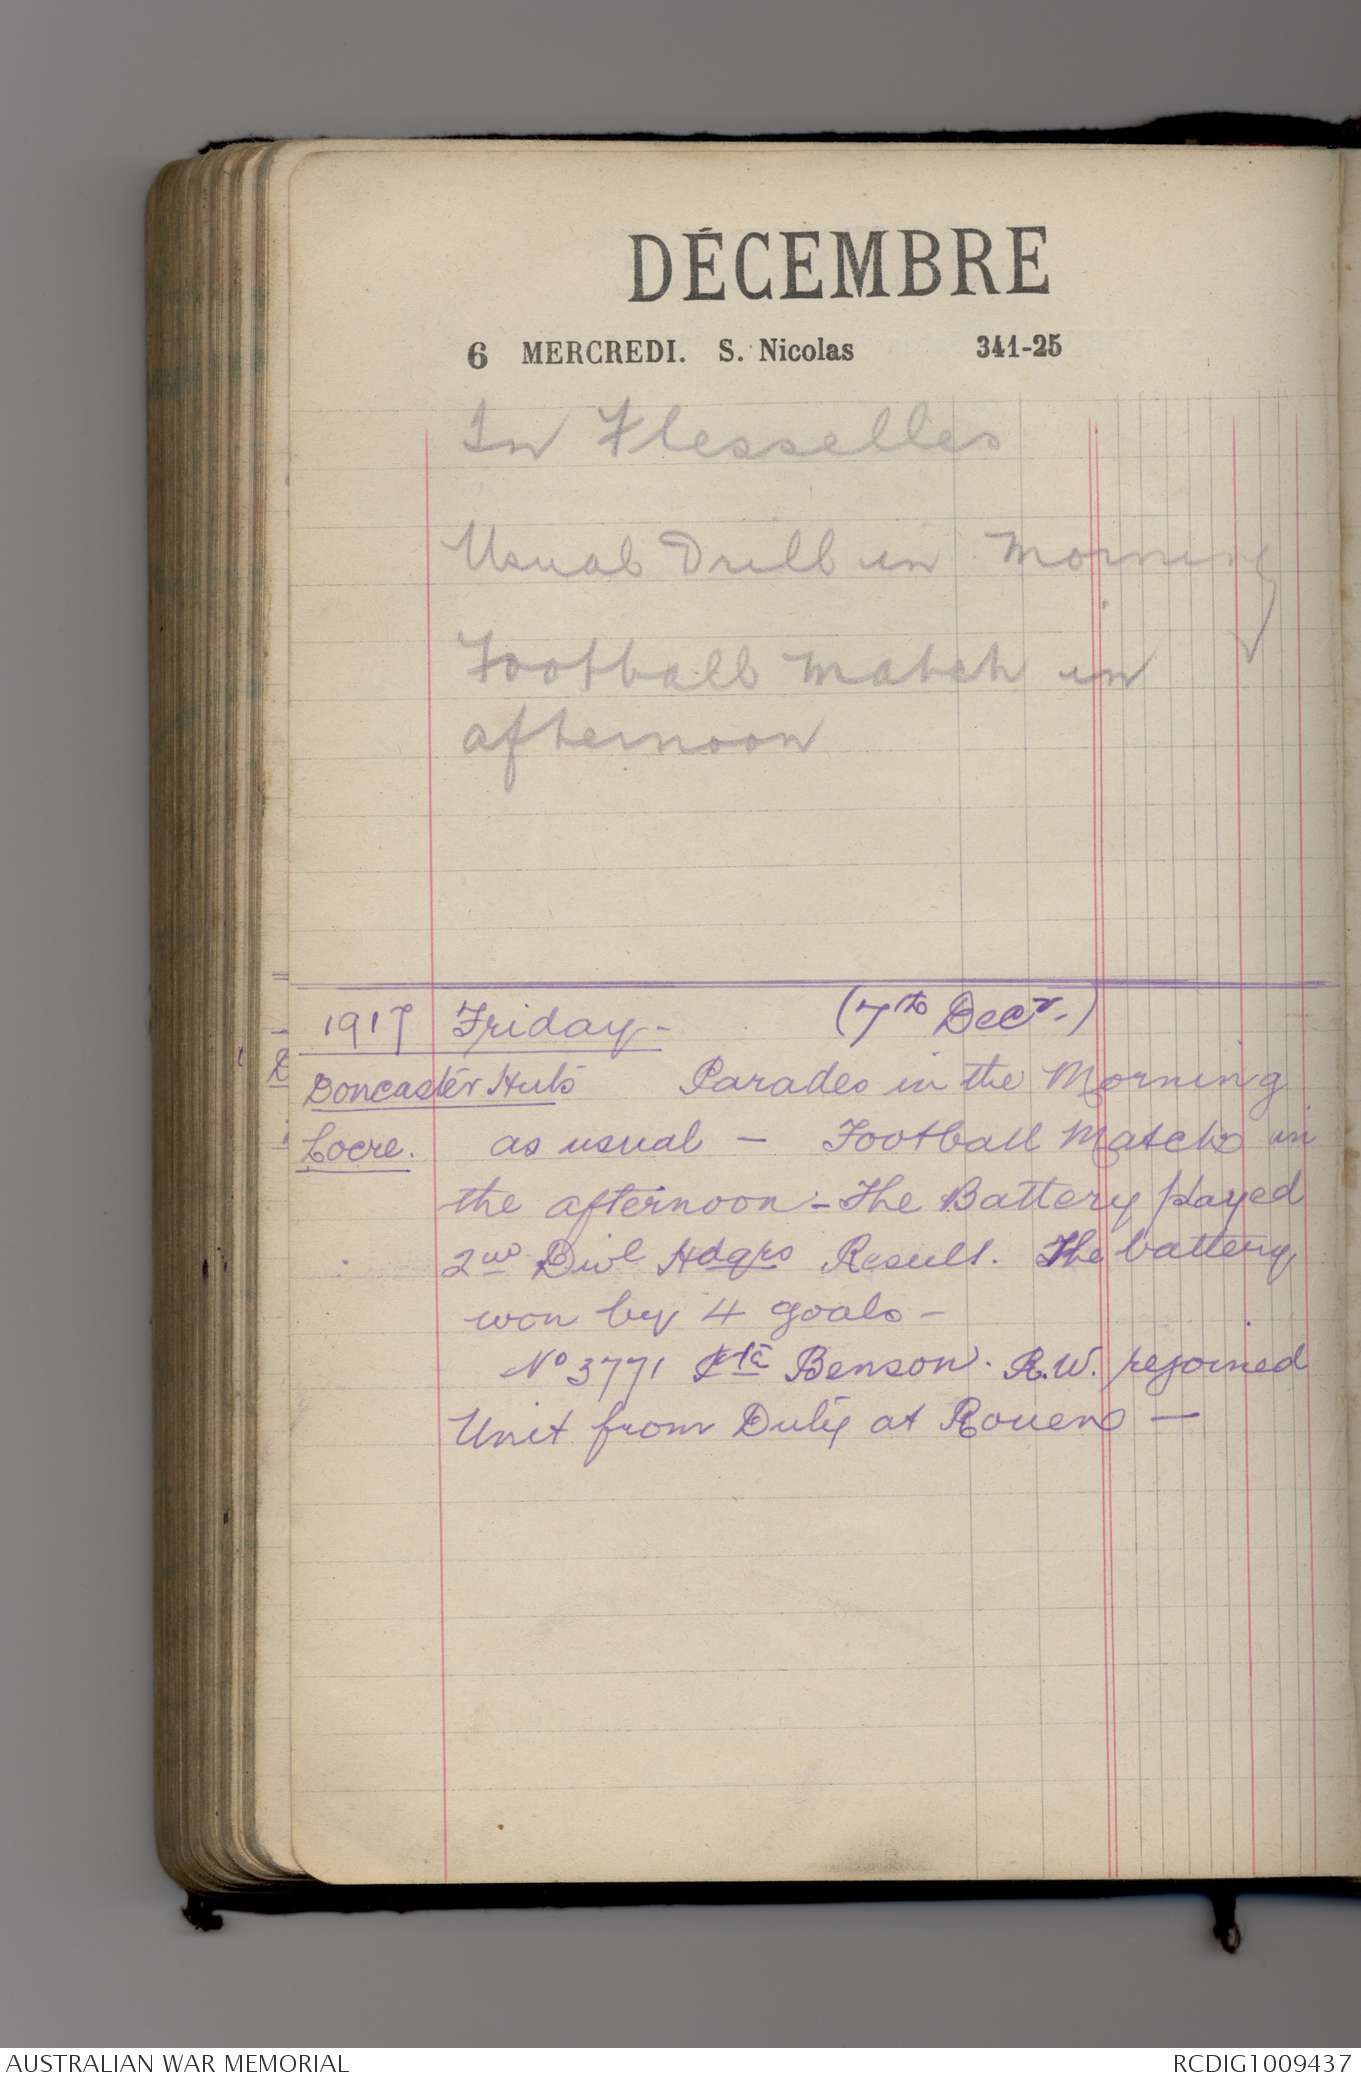 DÉCEMBRE
6 MERCREDI. S. Nicolas 341-25
In Flesselles
Usual Drill in Morning
Football Match in
afternoon
1917 Friday - (7th Decr.)
Doncaster Huts Parades in the Morning
Locre. as usual — Football Match in
the afternoon - The Battery played
2nd Divl Hdqrs Result. The battery
won by 4 goals -
No 3771 Pte Benson. R.W. rejoined
Unit from Duty at Rouen —
AUSTRALIAN WAR MEMORIAL RCDIG1009437